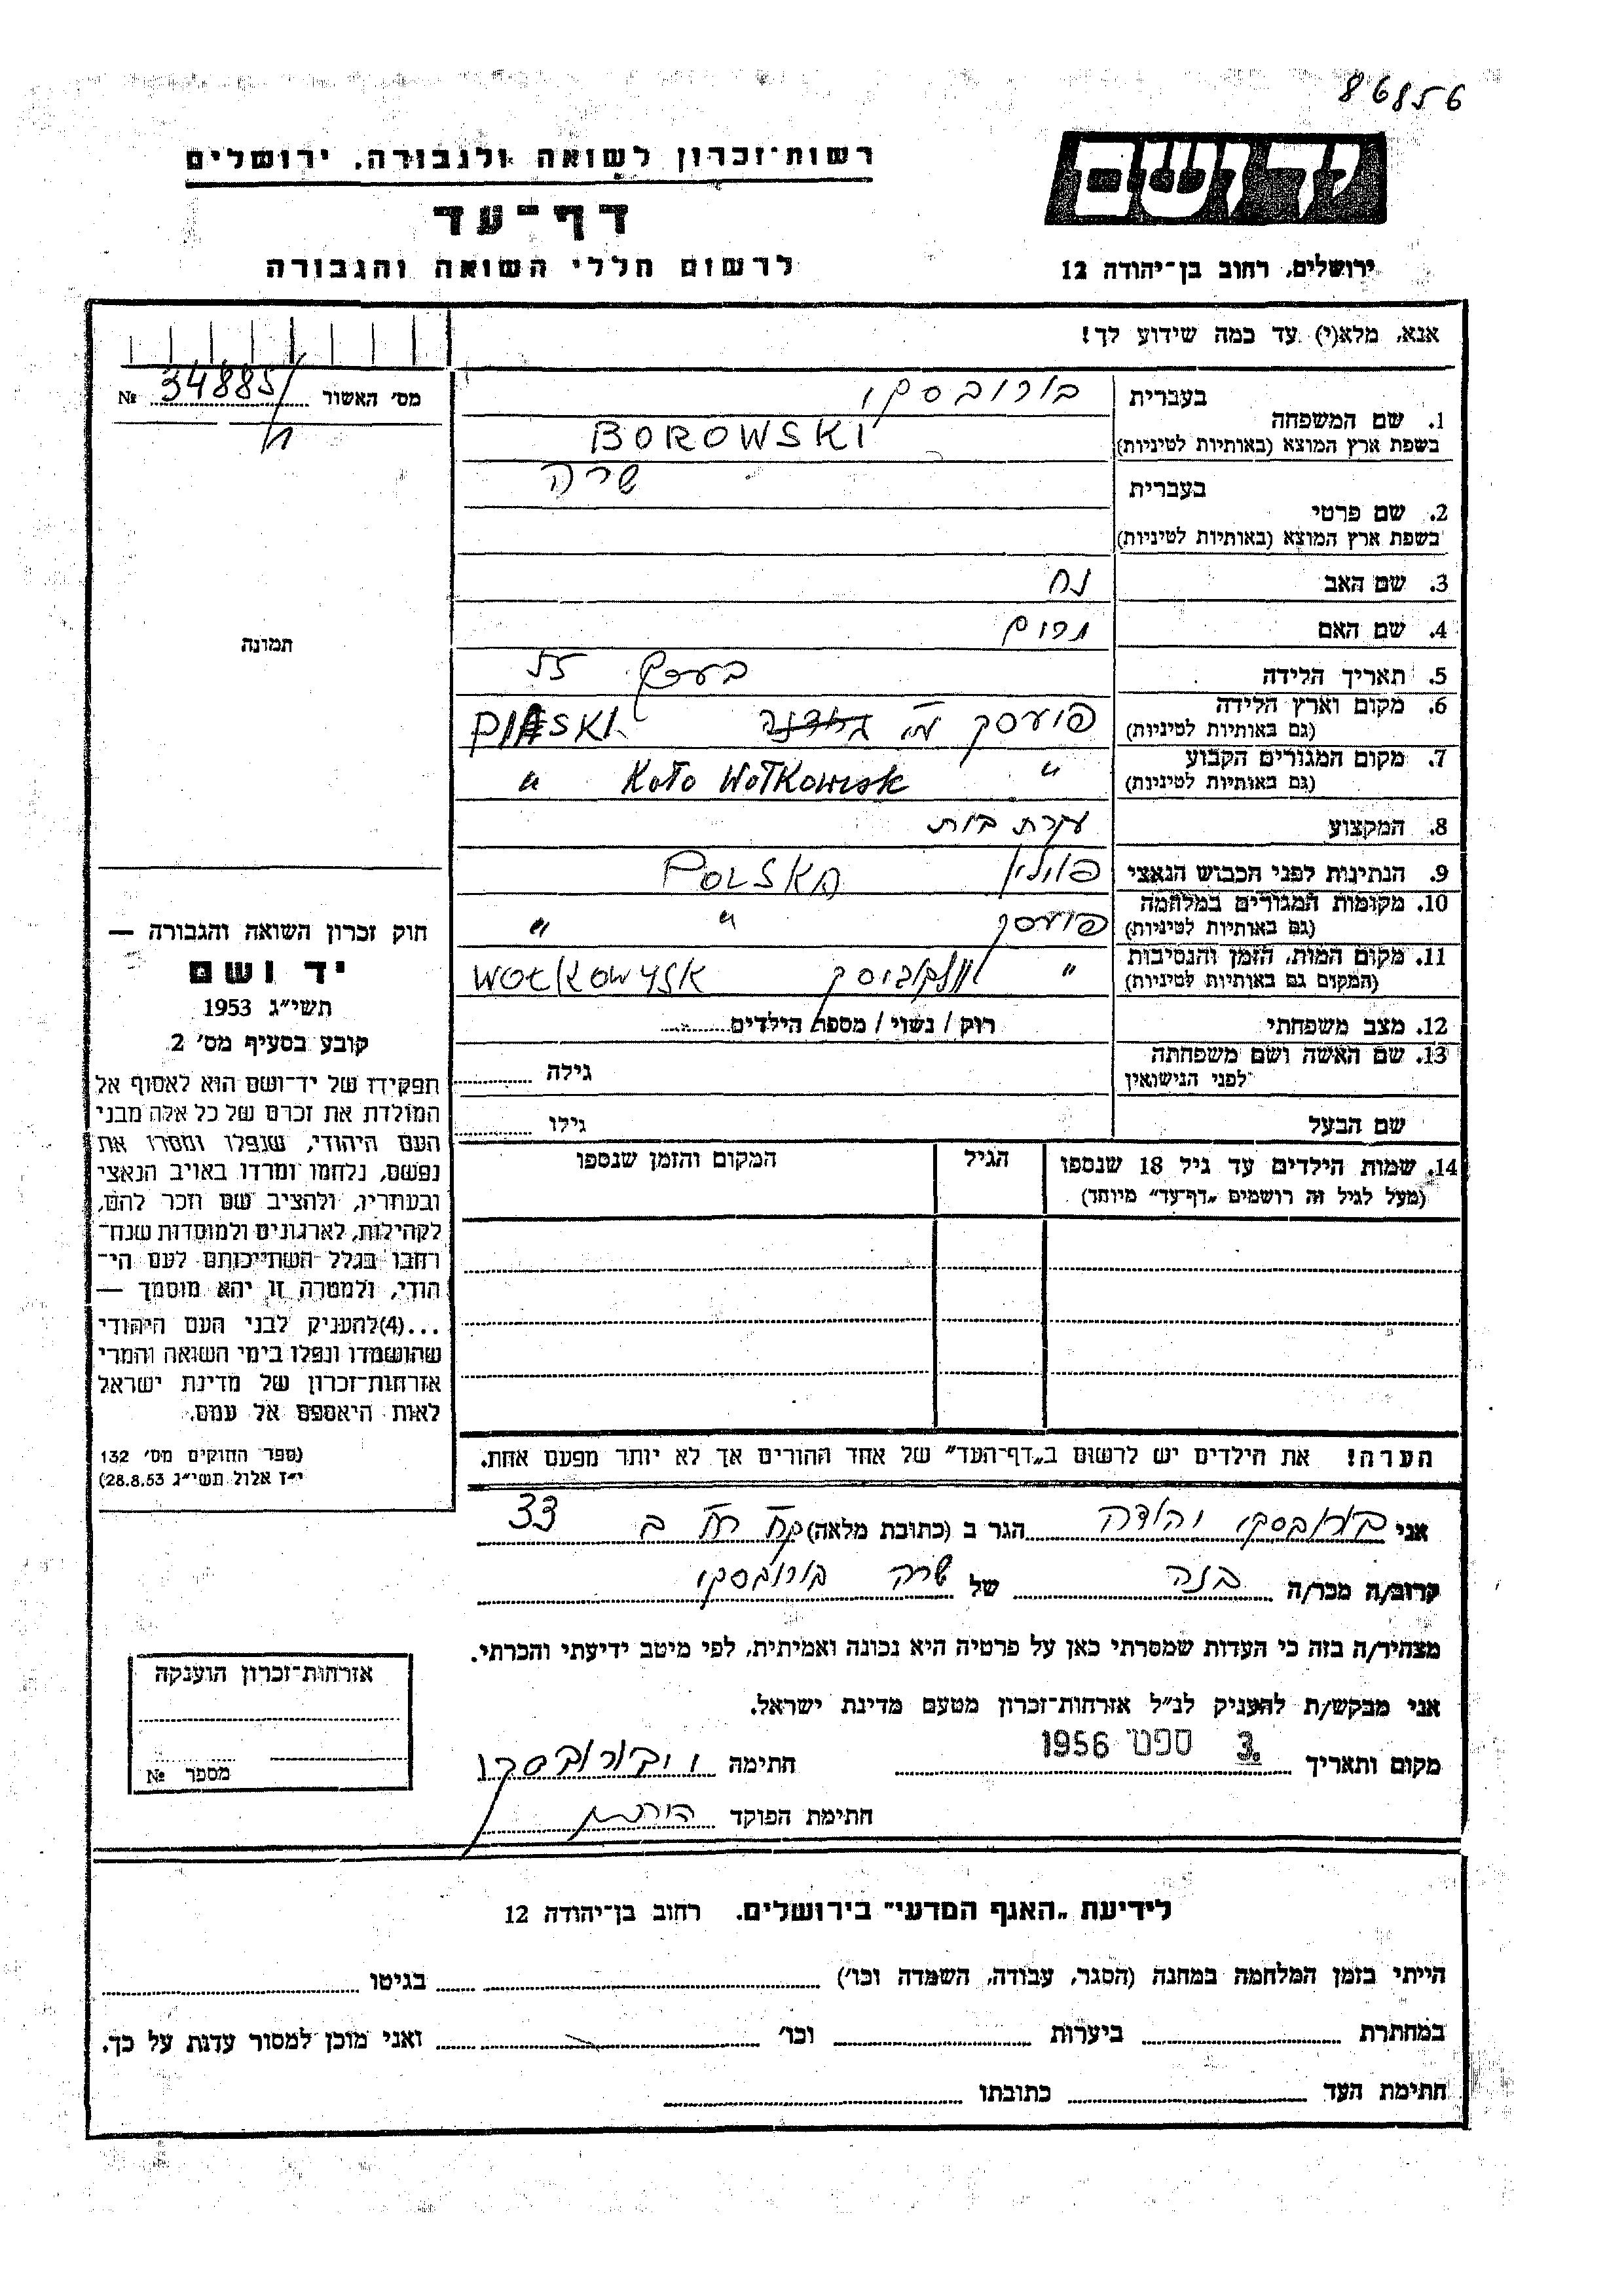 86856
רשות־זכרון לשואה ולגבורה, ירושלים
יד ושם
דף־עד
לרשום חללי השואה והגבורה
ירושלים, רחוב בן־יהודה 12
אנא, מלא(י) עד כמה שידוע לך!
מס׳ האשור № 34885/
1. שם המשפחה
בעברית בורובסקי
בשפת ארץ המוצא (באותיות לטיניות) BOROWSKI
2. שם פרטי
בעברית שרה
בשפת ארץ המוצא (באותיות לטיניות)
3. שם האב נח
4. שם האם
5. תאריך הלידה 55
6. מקום וארץ הלידה
(גם באותיות לטיניות) PIASKI
7. מקום המגורים הקבוע
(גם באותיות לטיניות) " Koło Wołkowisk "
8. המקצוע עקרת בית
9. הנתינות לפני הכבוש הנאצי פולין POLSKA
10. מקומות המגורים במלחמה
(גם באותיות לטיניות) " "
11. מקום המות, הזמן והנסיבות
(המקום גם באותיות לטיניות) " WOŁKOWYSK
12. מצב משפחתי רוק / נשוי / מספר הילדים
13. שם האשה ושם משפחתה
לפני הנישואין גילה
שם הבעל גילו
14. שמות הילדים עד גיל 18 שנספו
(מעל לגיל זה רושמים „דף־עד״ מיוחד)
הגיל
המקום והזמן שנספו
הערה! את הילדים יש לרשום ב„דף־העד״ של אחד ההורים אך לא יותר מפעם אחת.
תמונה
חוק זכרון השואה והגבורה —
יד ושם
תשי״ג 1953
קובע בסעיף מס׳ 2
תפקידו של יד־ושם הוא לאסוף אל
המולדת את זכרם של כל אלה מבני
העם היהודי, שנפלו ומסרו את
נפשם, נלחמו ומרדו באויב הנאצי
ובעוזריו, ולהציב שם וזכר להם,
לקהילות, לארגונים ולמוסדות שנח־
רבו בגלל השתייכותם לעם הי־
הודי, ולמטרה זו יהא מוסמך —
...(4)להעניק לבני העם היהודי
שהושמדו ונפלו בימי השואה והמרי
אזרחות־זכרון של מדינת ישראל
לאות היאספם אל עמם.
(ספר החוקים מס׳ 132
י״ז אלול תשי״ג 28.8.53)
אני בורובסקי יהודה הגר ב (כתובת מלאה) 33
קרוב/ה מכר/ה בנה של שרה בורובסקי
מצהיר/ה בזה כי העדות שמסרתי כאן על פרטיה היא נכונה ואמיתית, לפי מיטב ידיעתי והכרתי.
אני מבקש/ת להעניק לנ״ל אזרחות־זכרון מטעם מדינת ישראל.
מקום ותאריך 3. ספט׳ 1956 חתימה י בורובסקי
חתימת הפוקד
אזרחות־זכרון הוענקה
מספר №
לידיעת „האגף המדעי״ בירושלים. רחוב בן־יהודה 12
הייתי בזמן המלחמה במחנה (הסגר, עבודה, השמדה וכו׳) בגיטו
במחתרת ביערות וכו׳ ואני מוכן למסור עדות על כך.
חתימת העד כתובתו